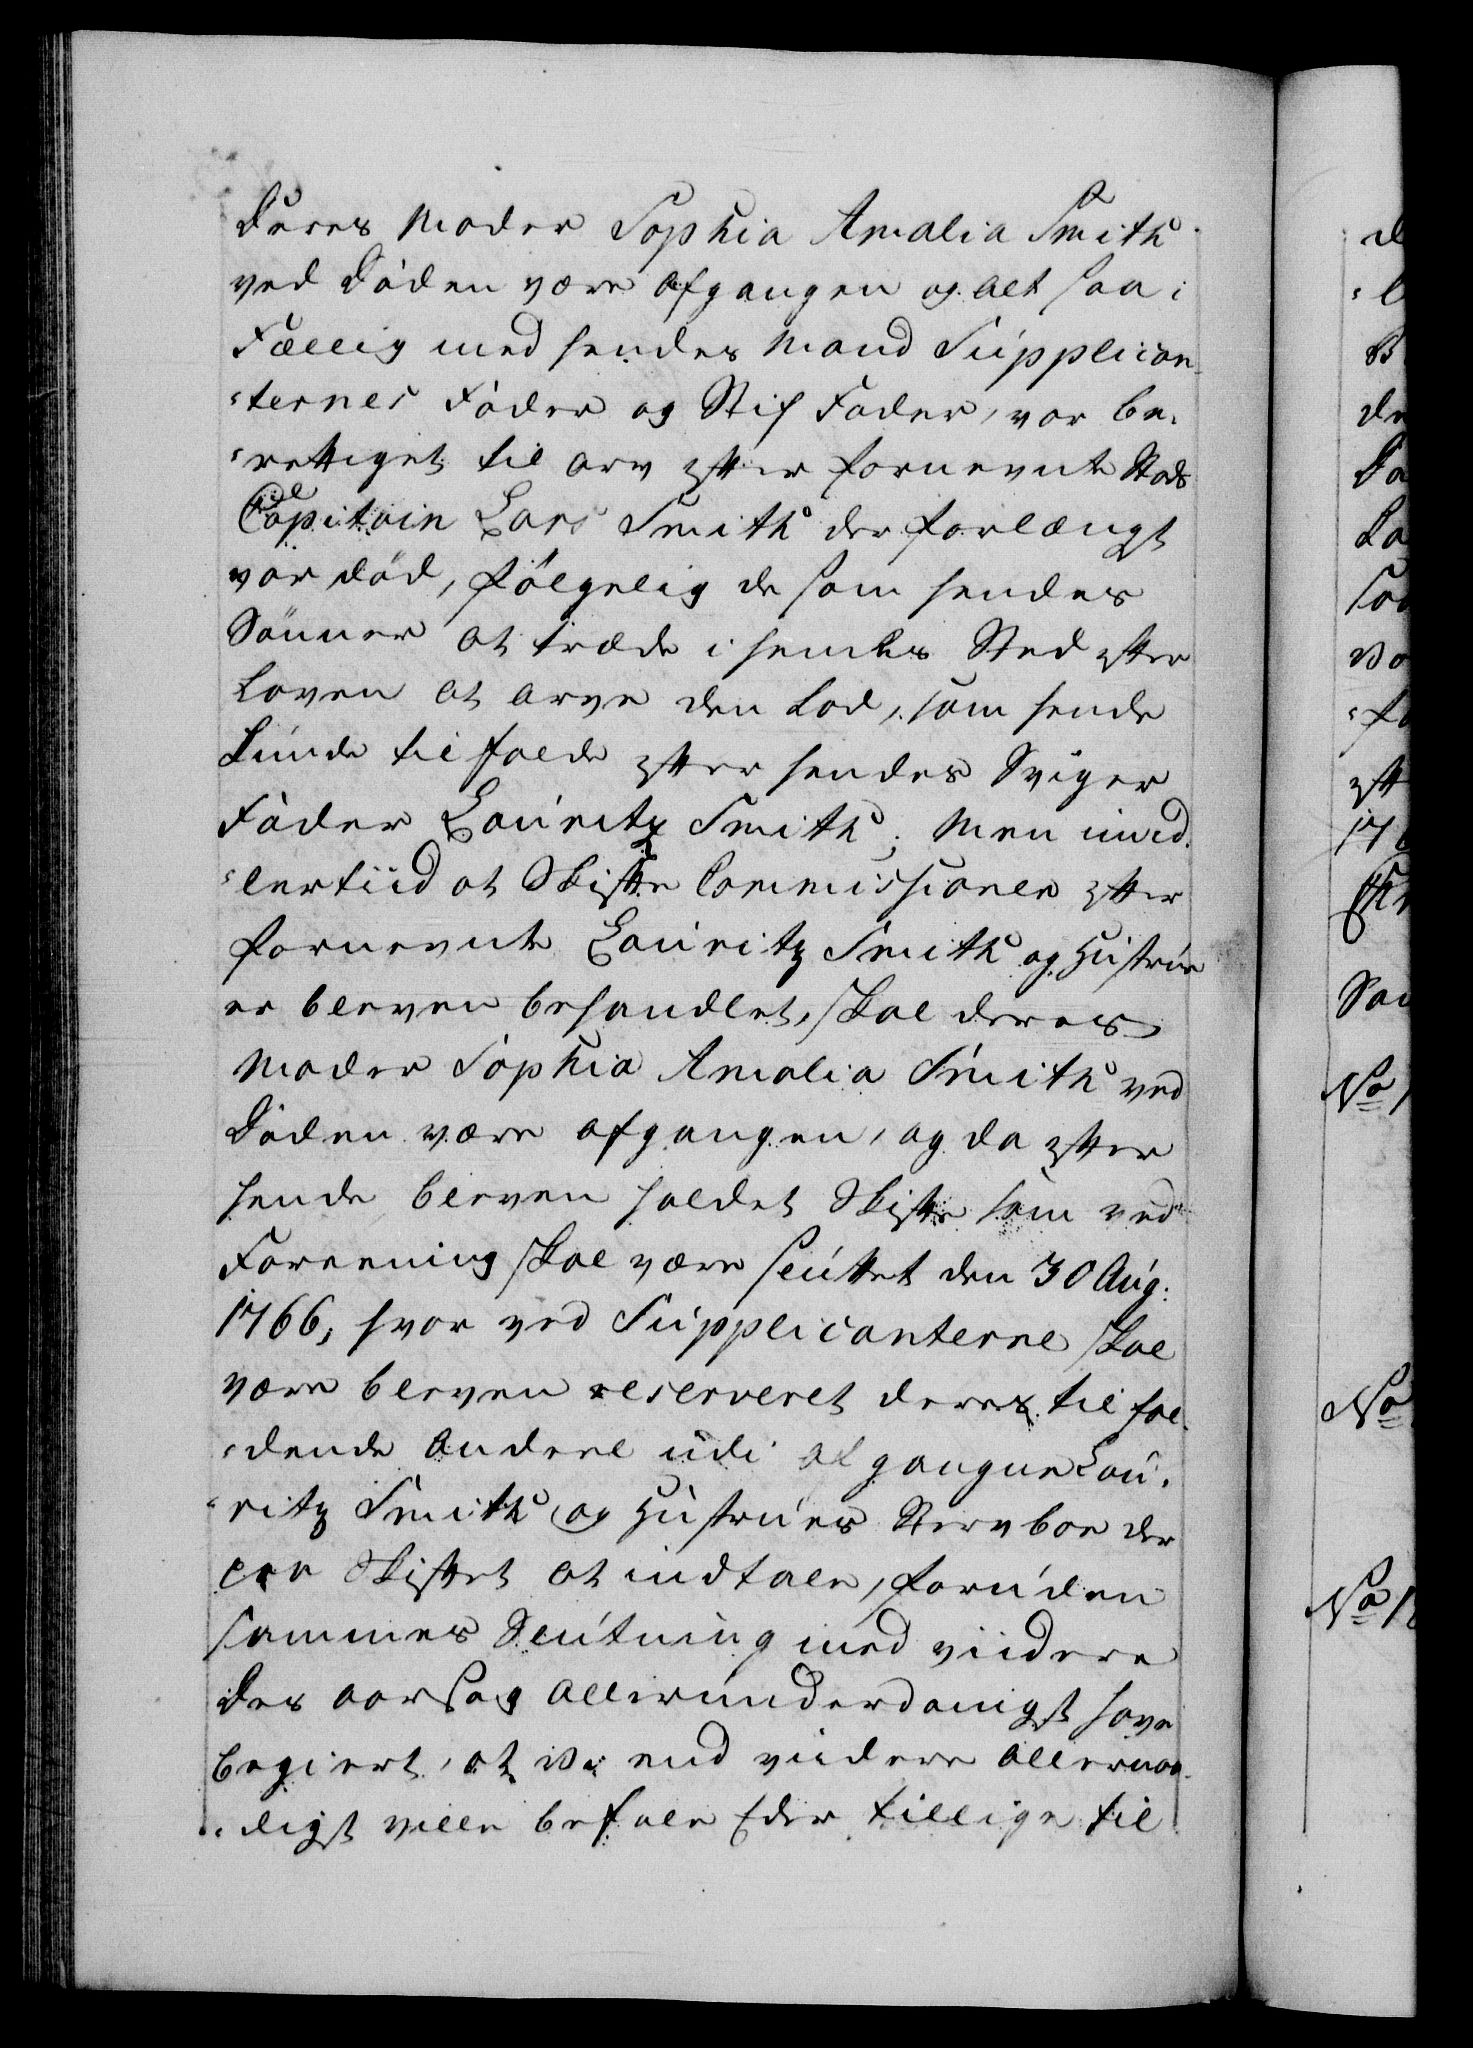 deres Moder Sophia Amalia Smith
ved Døden være afgangen og alt saa i
Fællig med hendes Mand Supplican-
-ternes Fader og Stif Fader, var be-
-rettiget til arv efter fornevnte Stads
Capitain Lars Smith der forlængst
var død, følgelig de som hendes
Sønner at træde i hendes Sted efter
Loven at arve den Lod, som hende
kunde tilfalde efter hendes Sviger
Fader Lauritz Smith; Men imid-
-lertiid at Skifte Commissionen efter
fornevnte Lauritz Smith og Hustrue
er bleven behandlet, skal deres
Moder Sophia Amalia Smith ved
Døden være afgangen, og da efter
hende bleven holdet Skifte som ved
Foreening skal være sluttet den 30 Aug:
1766, hvor ved Supplicanterne skal
være bleven reserveret deres tilfal-
-dende Andeel udi afgangne Lau-
-ritz Smith og Hustrues Stervboe der
paa Skiftet at indtale, foruden
sammes Slutning med viidere
Des aarsag allerunderdanigst have
begiert, at Vi end viidere allernaa-
-digst ville befale Eder tillige til